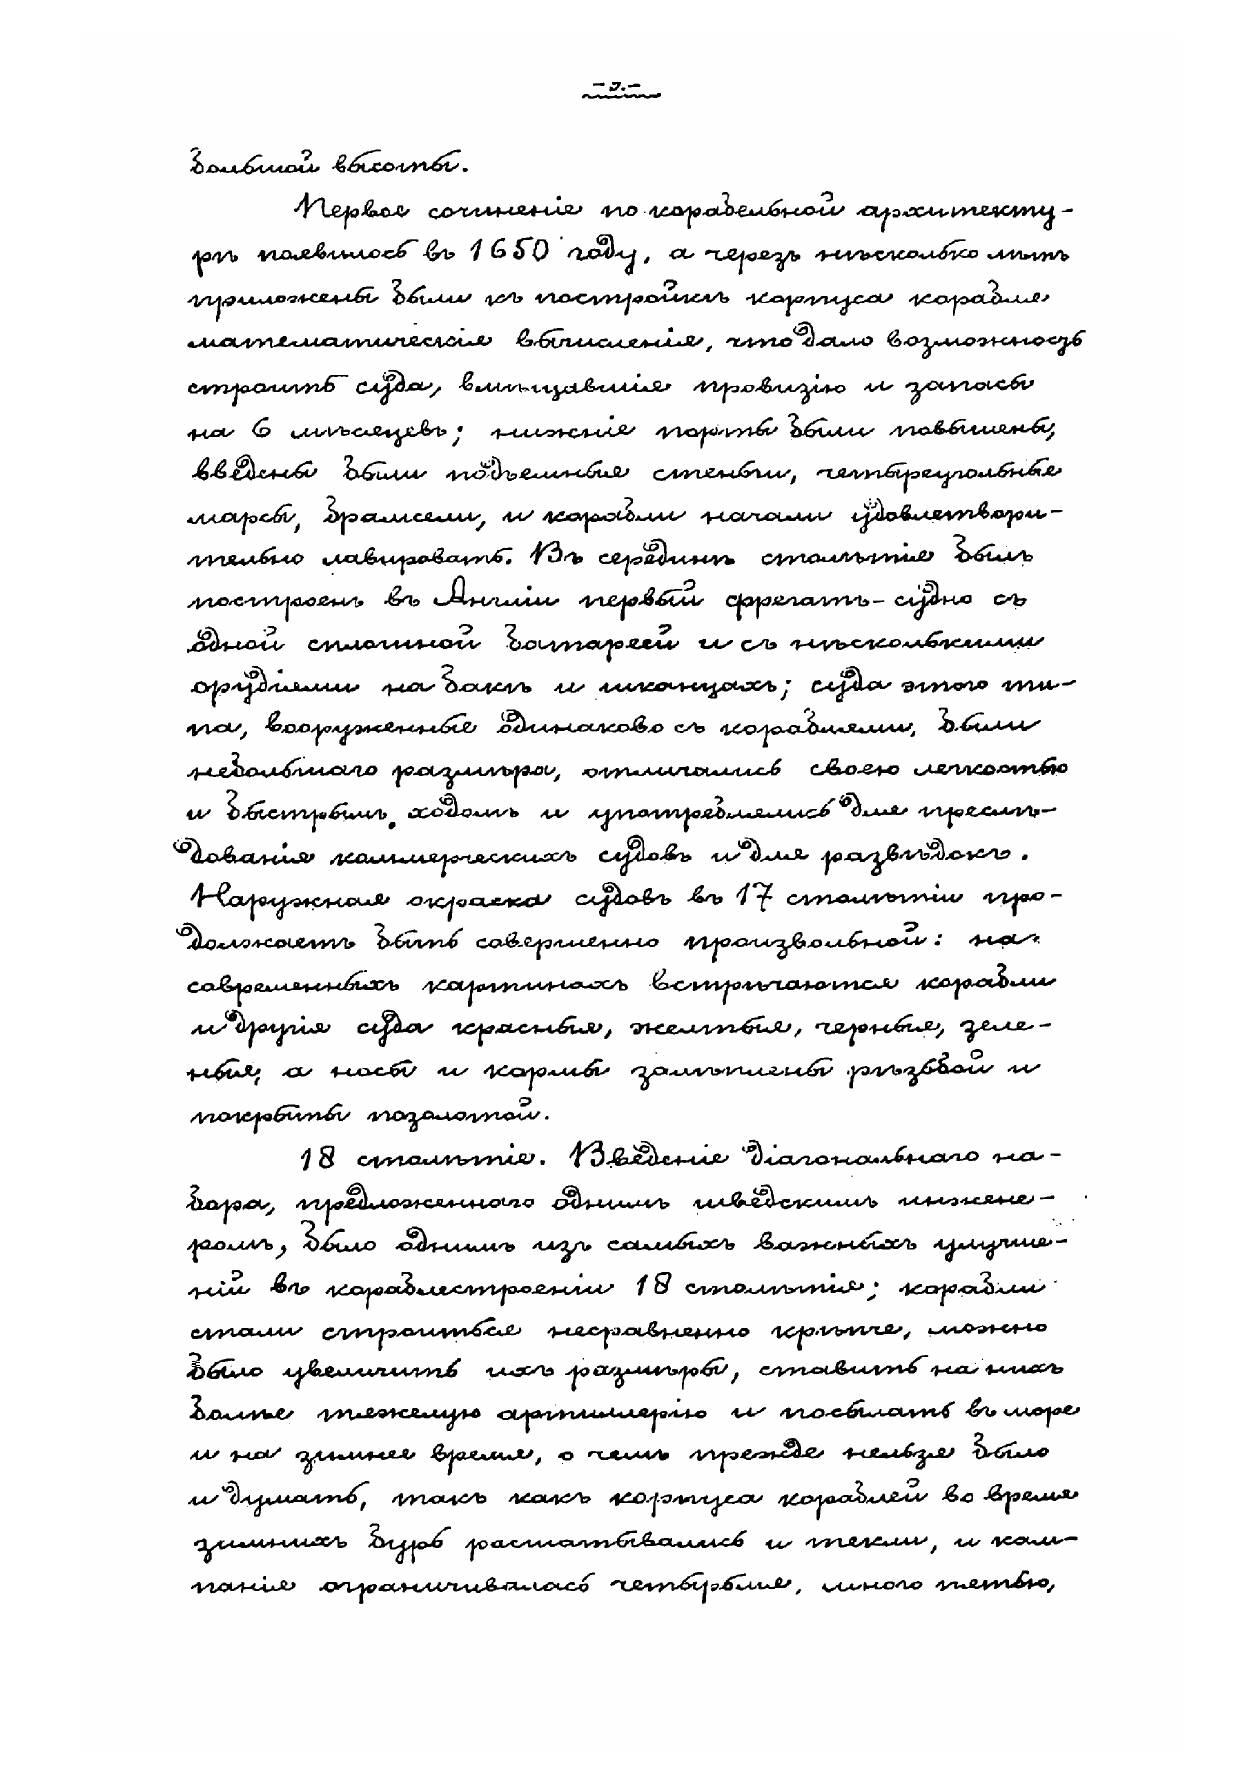 большой высоты.
Первое сочиненіе по корабельной архитекту-
рѣ появилось въ 1650 году, а черезъ нѣсколько лѣтъ
приложены были къ постройкѣ корпуса корабля
математическія вычисленія, что дало возможность
строить суда, вмѣщавшія провизію и запасы
на 6 мѣсяцевъ; нижніе порты были повышены,
введены были подъемныя стеньги, четыреугольные
марсы, брамсели, и корабли начали удовлетвори-
тельно лавировать. Въ серединѣ столѣтія былъ
построенъ въ Англіи первый фрегатъ-судно съ
одной сплошной батареей и съ нѣсколькими
орудіями на бакѣ и шканцахъ; суда этого ти-
па, вооруженные одинаково съ кораблями, были
небольшаго размѣра, отличались своею легкостью
и быстрымъ ходомъ и употреблялись для преслѣ-
дованія коммерческихъ судовъ и для развѣдокъ.
Наружная окраска судовъ въ 17 столѣтіи про-
должаетъ быть совершенно произвольной: на
современныхъ картинахъ встрѣчаются корабли
и другія суда красныя, желтыя, черныя, зеле-
ныя, а носы и кормы залѣплены рѣзьбой и
покрыты позолотой.
18 столѣтіе. Введеніе діагональнаго на-
бора, предложеннаго однимъ шведскимъ инжене-
ромъ, было однимъ изъ самыхъ важныхъ улучше-
ній въ кораблестроеніи 18 столѣтія; корабли
стали строиться несравненно крѣпче, можно
было увеличить ихъ размѣры, ставить на нихъ
болѣе тяжелую артиллерію и посылать въ море
и на зимнее время, о чемъ прежде нельзя было
и думать, такъ какъ корпуса кораблей во время
зимнихъ бурь расшатывались и текли, и кам-
панія ограничивалась четырьмя, много пятью,